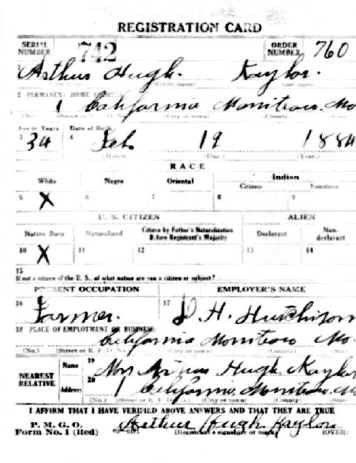 REGISTRATION CARD
SERIAL NUMBER 742 ORDER NUMBER 760
Arthur Hugh Kaylor
2 PERMANENT HOME ADDRESS
1 California Moniteau Mo
Age in Years Date of Birth
3 34 4 Feb 19 1884
RACE
White Negro Oriental Indian
Citizen Noncitizen
5 X 6 7 8 9
U. S. CITIZEN ALIEN
Native Born Naturalized Citizen by Father's Naturalization Before Registrant's Majority Declarant Non-declarant
10 X 11 12 13 14
15
If not a citizen of the U. S., of what nation are you a citizen or subject?
PRESENT OCCUPATION EMPLOYER'S NAME
16 Farmer. 17 H. Hutchison
18 PLACE OF EMPLOYMENT OR BUSINESS
California Moniteau Mo
(No.) (Street or R. F. D. No.)
NEAREST RELATIVE
Name 19 Mrs Hugh Kaylor
Address 20 1 California, Moniteau, Mo
(No.) (Street or R. F. D. No.)
I AFFIRM THAT I HAVE VERIFIED ABOVE ANSWERS AND THAT THEY ARE TRUE
P. M. G. O.
Form No. 1 (Red) Arthur Hugh Kaylor
(Registrant's signature or mark) (OVER)